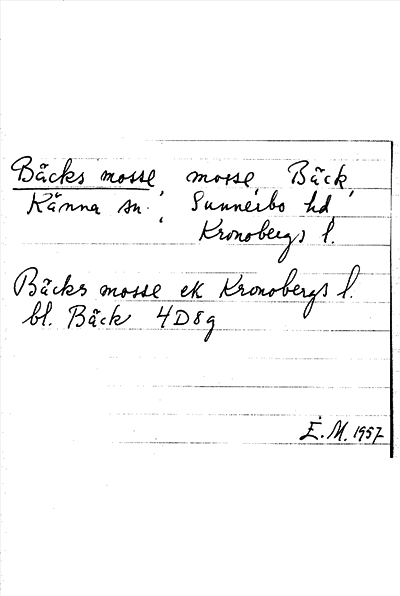 Bäcks mosse, mosse, Bäck,
Känna sn., Sunnerbo hd
Kronobergs l.
Bäcks mosse ek Kronobergs l.
bl. Bäck 4D8g
E.M. 1957